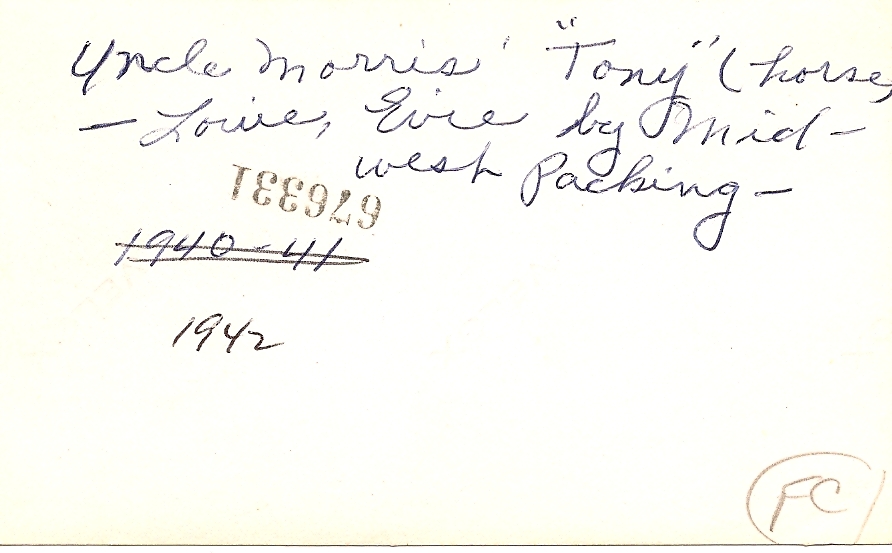 Uncle Morris' "Tony" (horse,
— Louie, Evie by Mid-
west Packing —
676331
1940-41
1942
FC